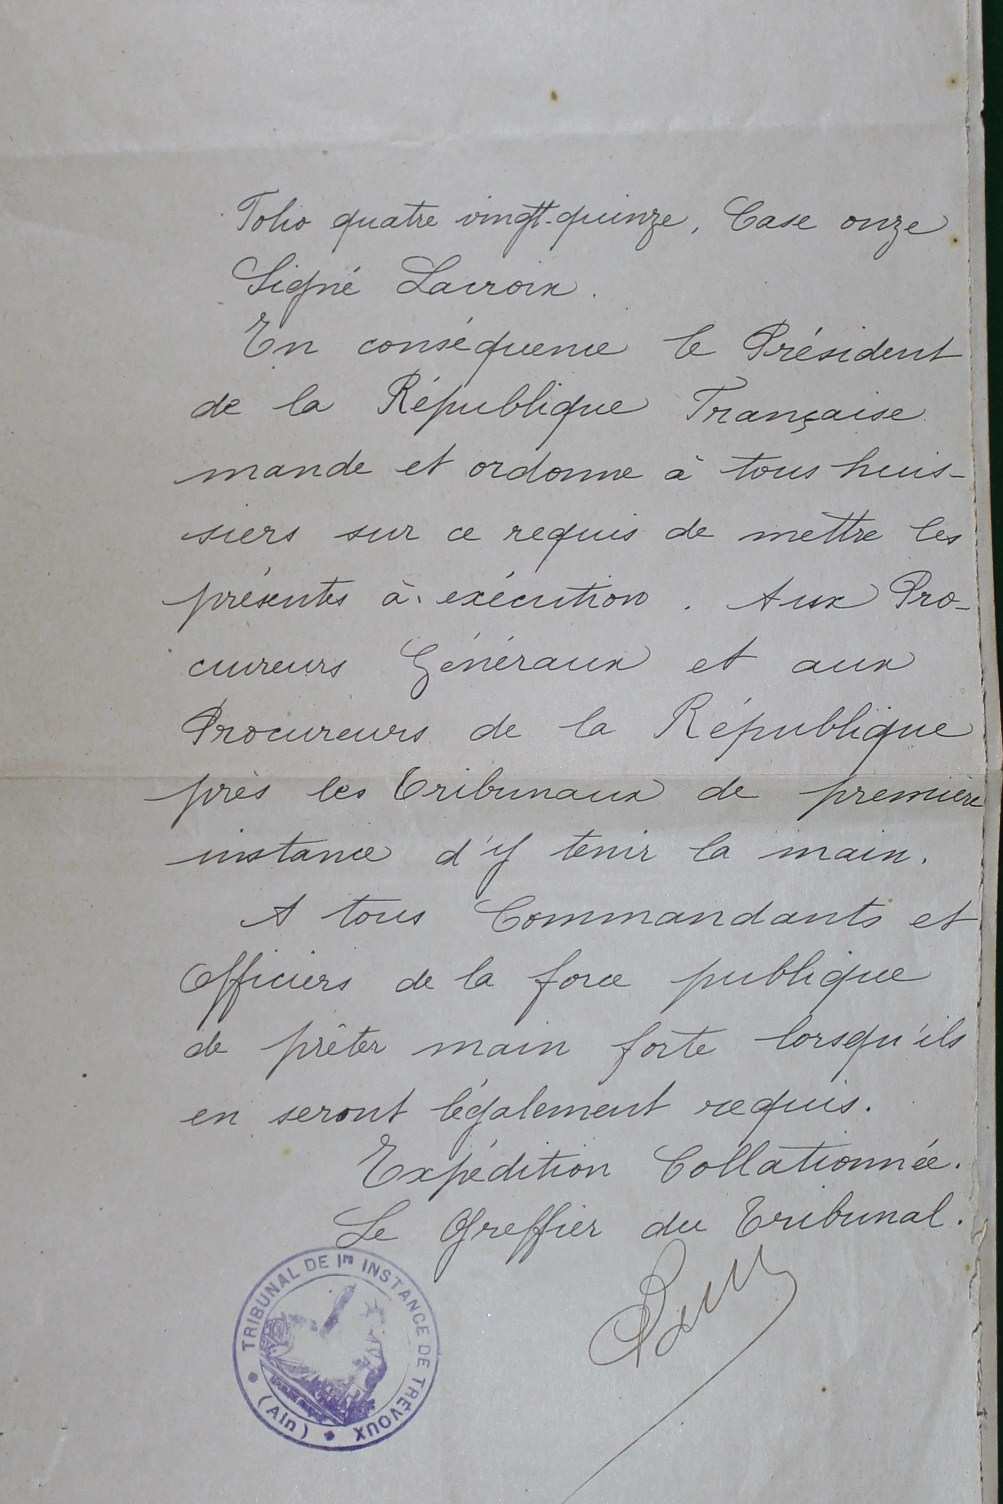 Folio quatre vingt-quinze, Case onze
Signé Lacroix.
En conséquence le Président
de la République Française
mande et ordonne à tous huis-
siers sur ce requis de mettre les
présentes à exécution. Aux Pro-
cureurs Généraux et aux
Procureurs de la République
près les Tribunaux de première
instance d'y tenir la main.
A tous Commandants et
Officiers de la force publique
de prêter main forte lorsqu'ils
en seront légalement requis.
Expédition Collationnée.
Le Greffier du Tribunal.
TRIBUNAL DE 1re INSTANCE DE TRÉVOUX
(Ain)